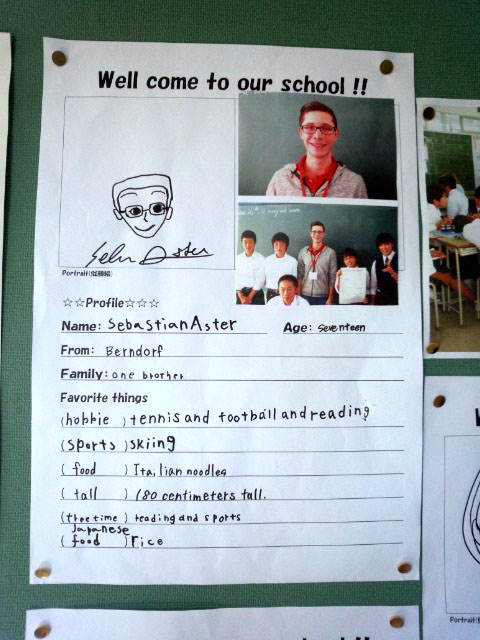 Well come to our school !!
Portrait(似顔絵)
☆☆Profile☆☆☆
Name: Sebastian Aster Age: seventeen
From: Berndorf
Family: one brother
Favorite things
(hobbie ) tennis and football and reading
(sports ) skiing
( food ) Italian noodles
( tall ) 180 centimeters tall.
(freetime ) reading and sports
Japanese
( food ) rice